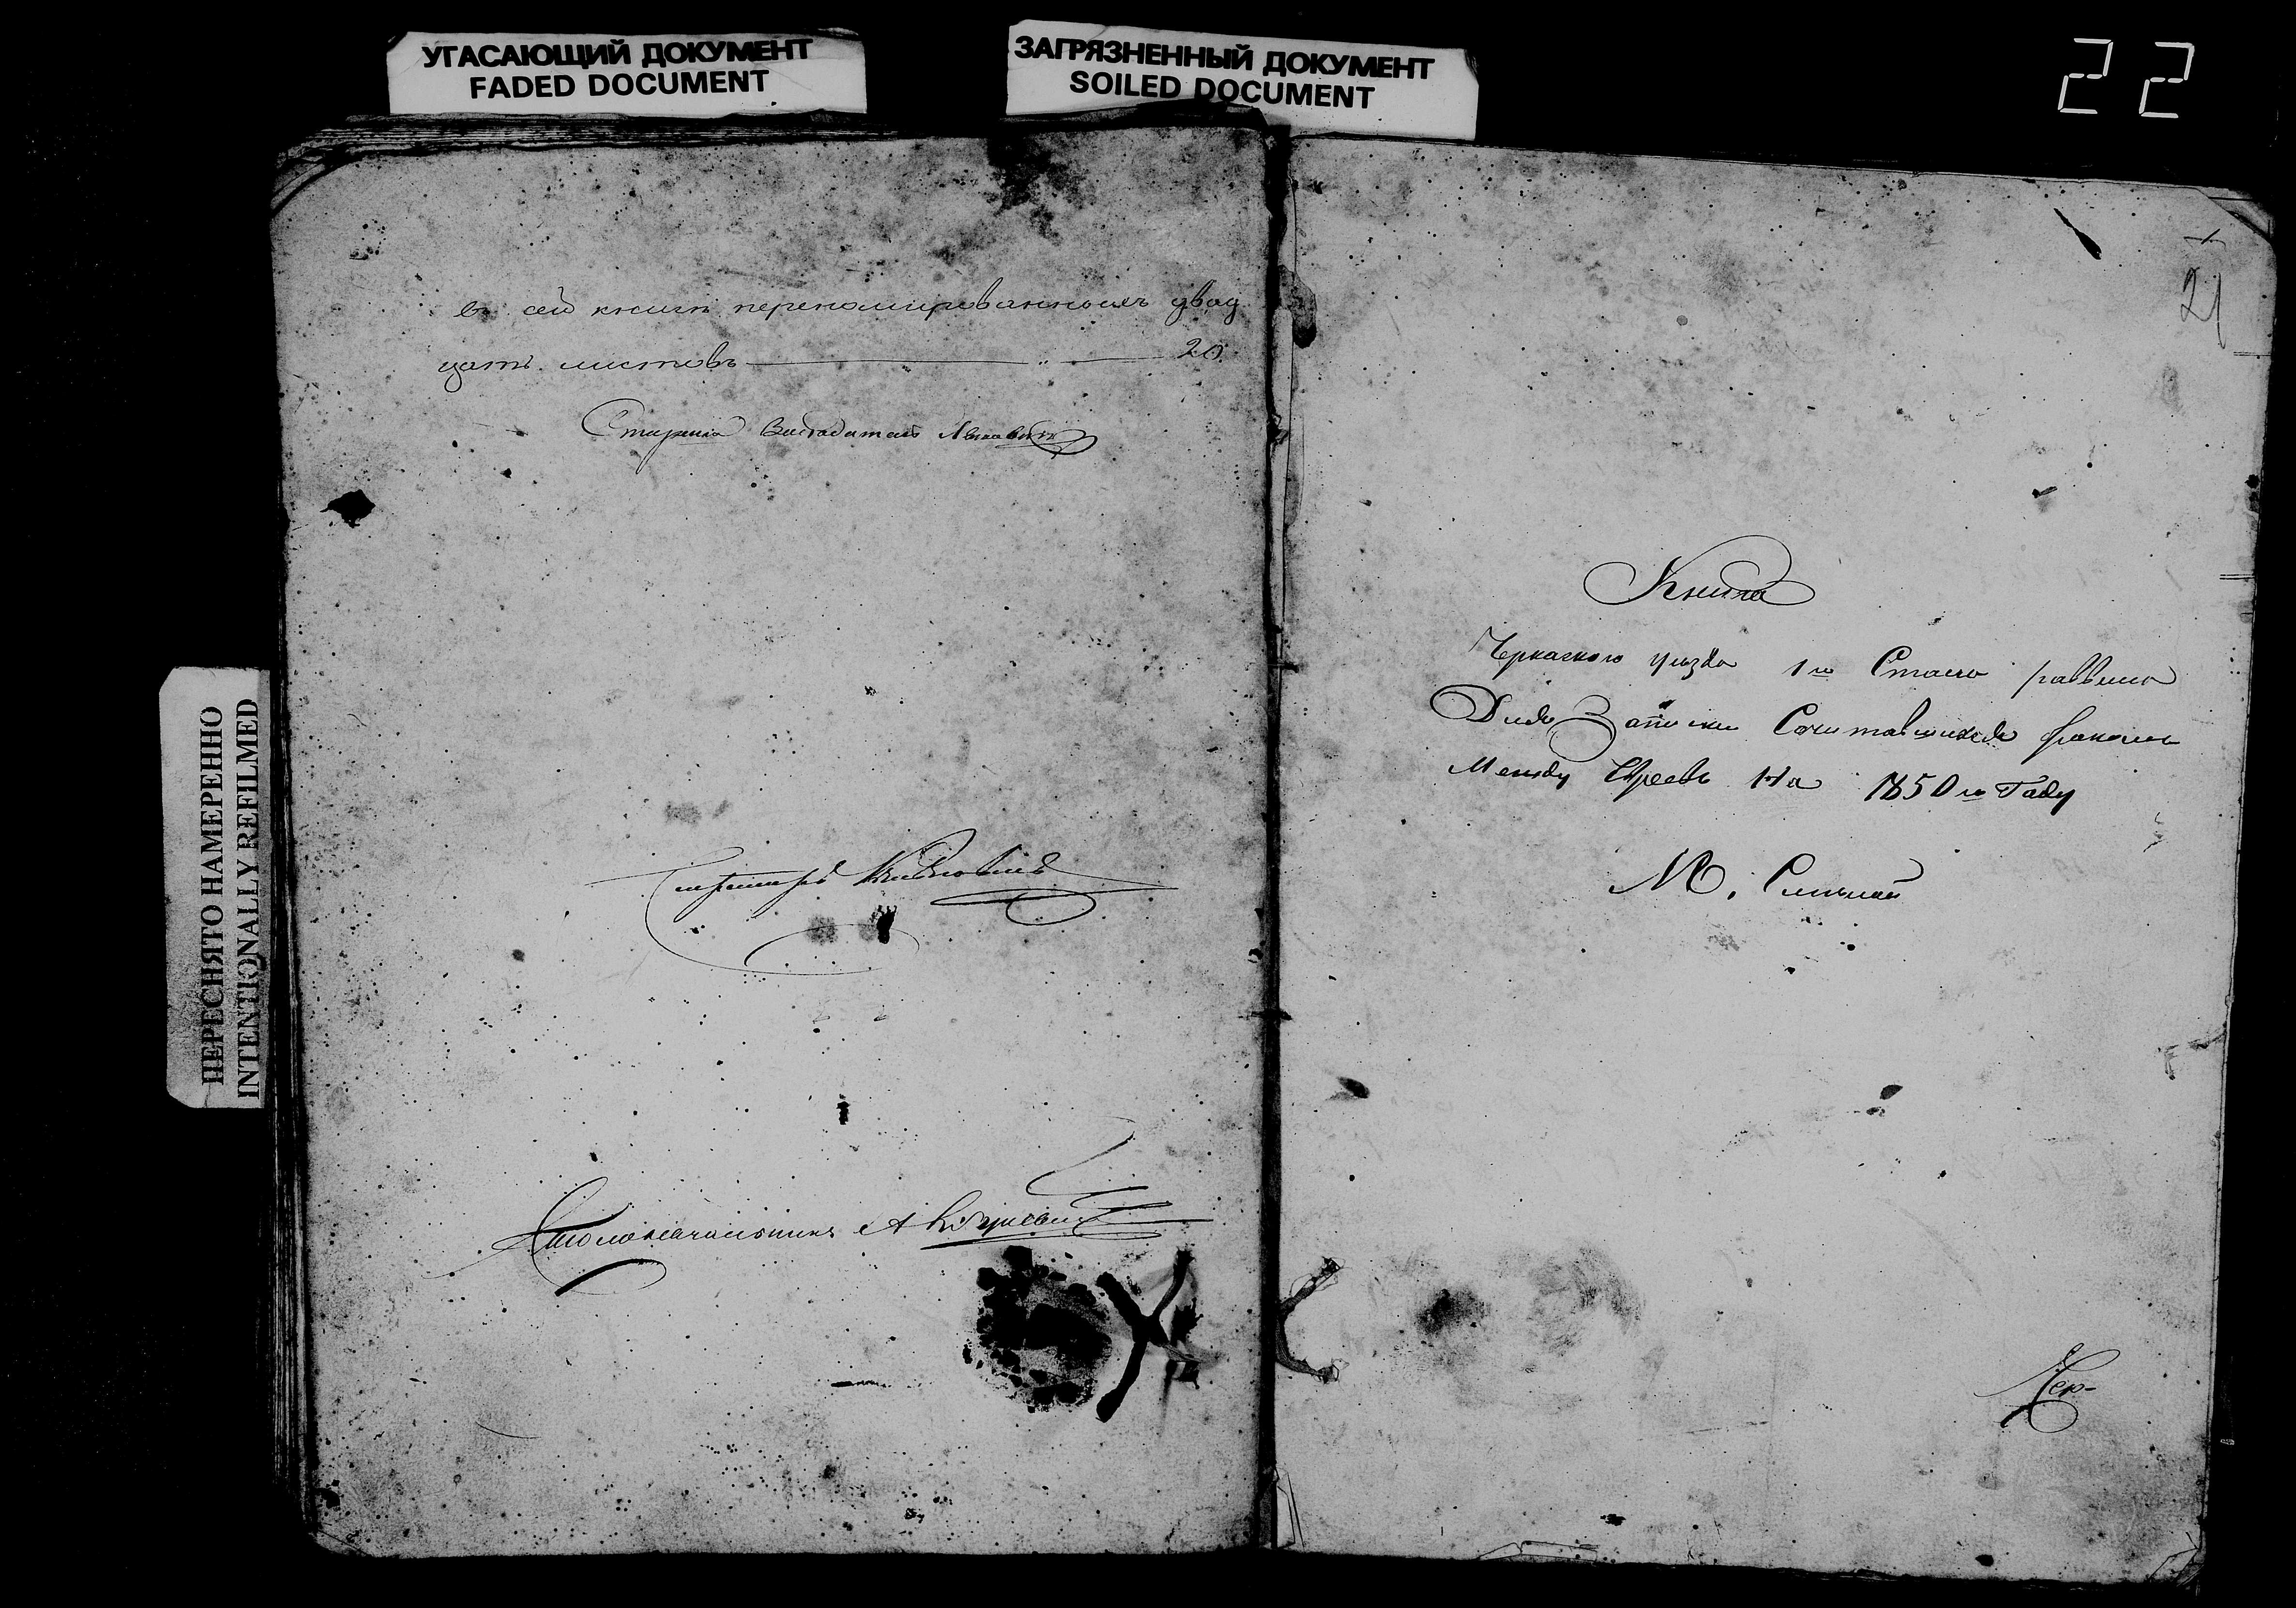 УГАСАЮЩИЙ ДОКУМЕНТ
FADED DOCUMENT
ЗАГРЯЗНЕННЫЙ ДОКУМЕНТ
SOILED DOCUMENT
22
ПЕРЕСНЯТО НАМЕРЕННО
INTENTIONALLY REFILMED
въ сей книги переномированныхъ двад
цать листовъ 20
Секретарь
Столоначальникъ А
21
Книга
Черкаского уезда 1го Стана раввина
Для Записки Сочитавшихся браком
Между Евреевъ На 1850 го Году
М. Смелой
Чер-